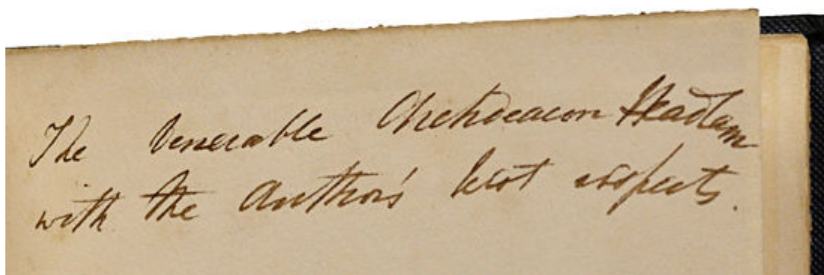 The Venerable Archdeacon Headlam
with the Author's best respects.